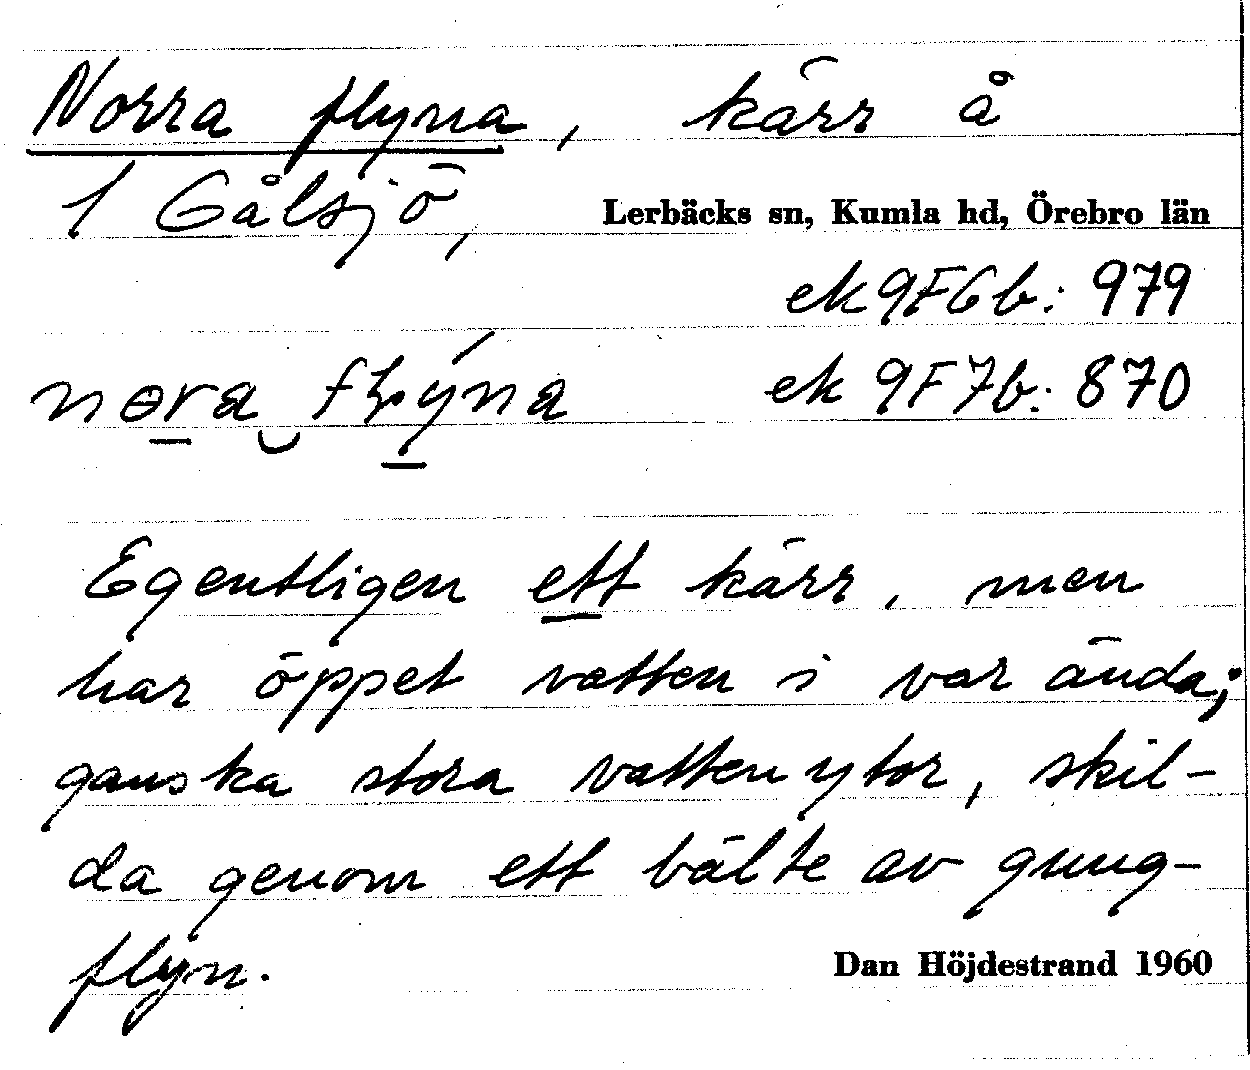 Norra flyna, kärr å
1 Gålsjö, Lerbäcks sn, Kumla hd, Örebro län
ek 9F6b: 979
ek 9F7b: 870
Egentligen ett kärr, men
har öppet vatten i var ända;
ganska stora vattenytor, skil-
da genom ett bälte av gung-
flyn. Dan Höjdestrand 1960